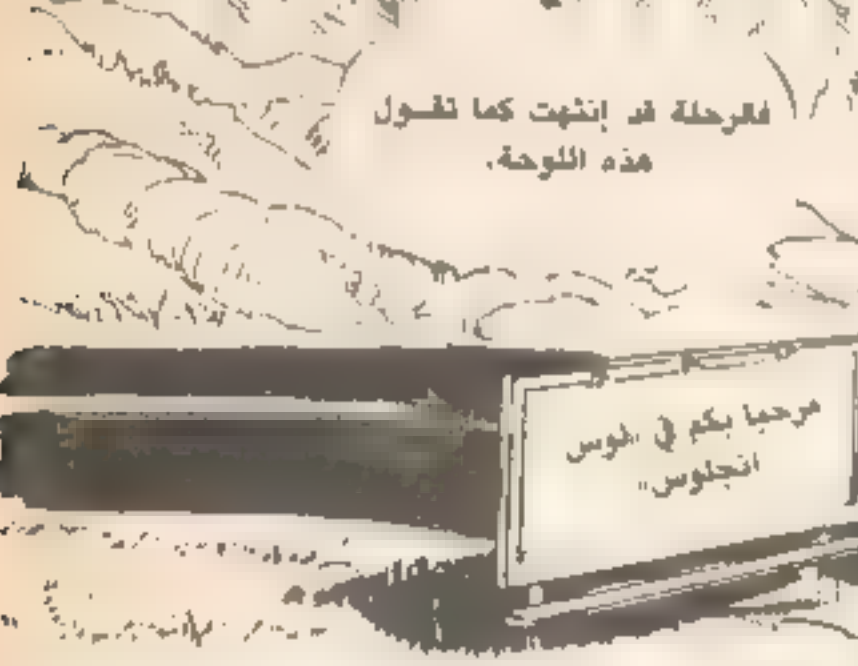 فالرحلة قد إنتهت كما تقول
هذه اللوحة.
مرحبا بكم في لوس
انجلوس"